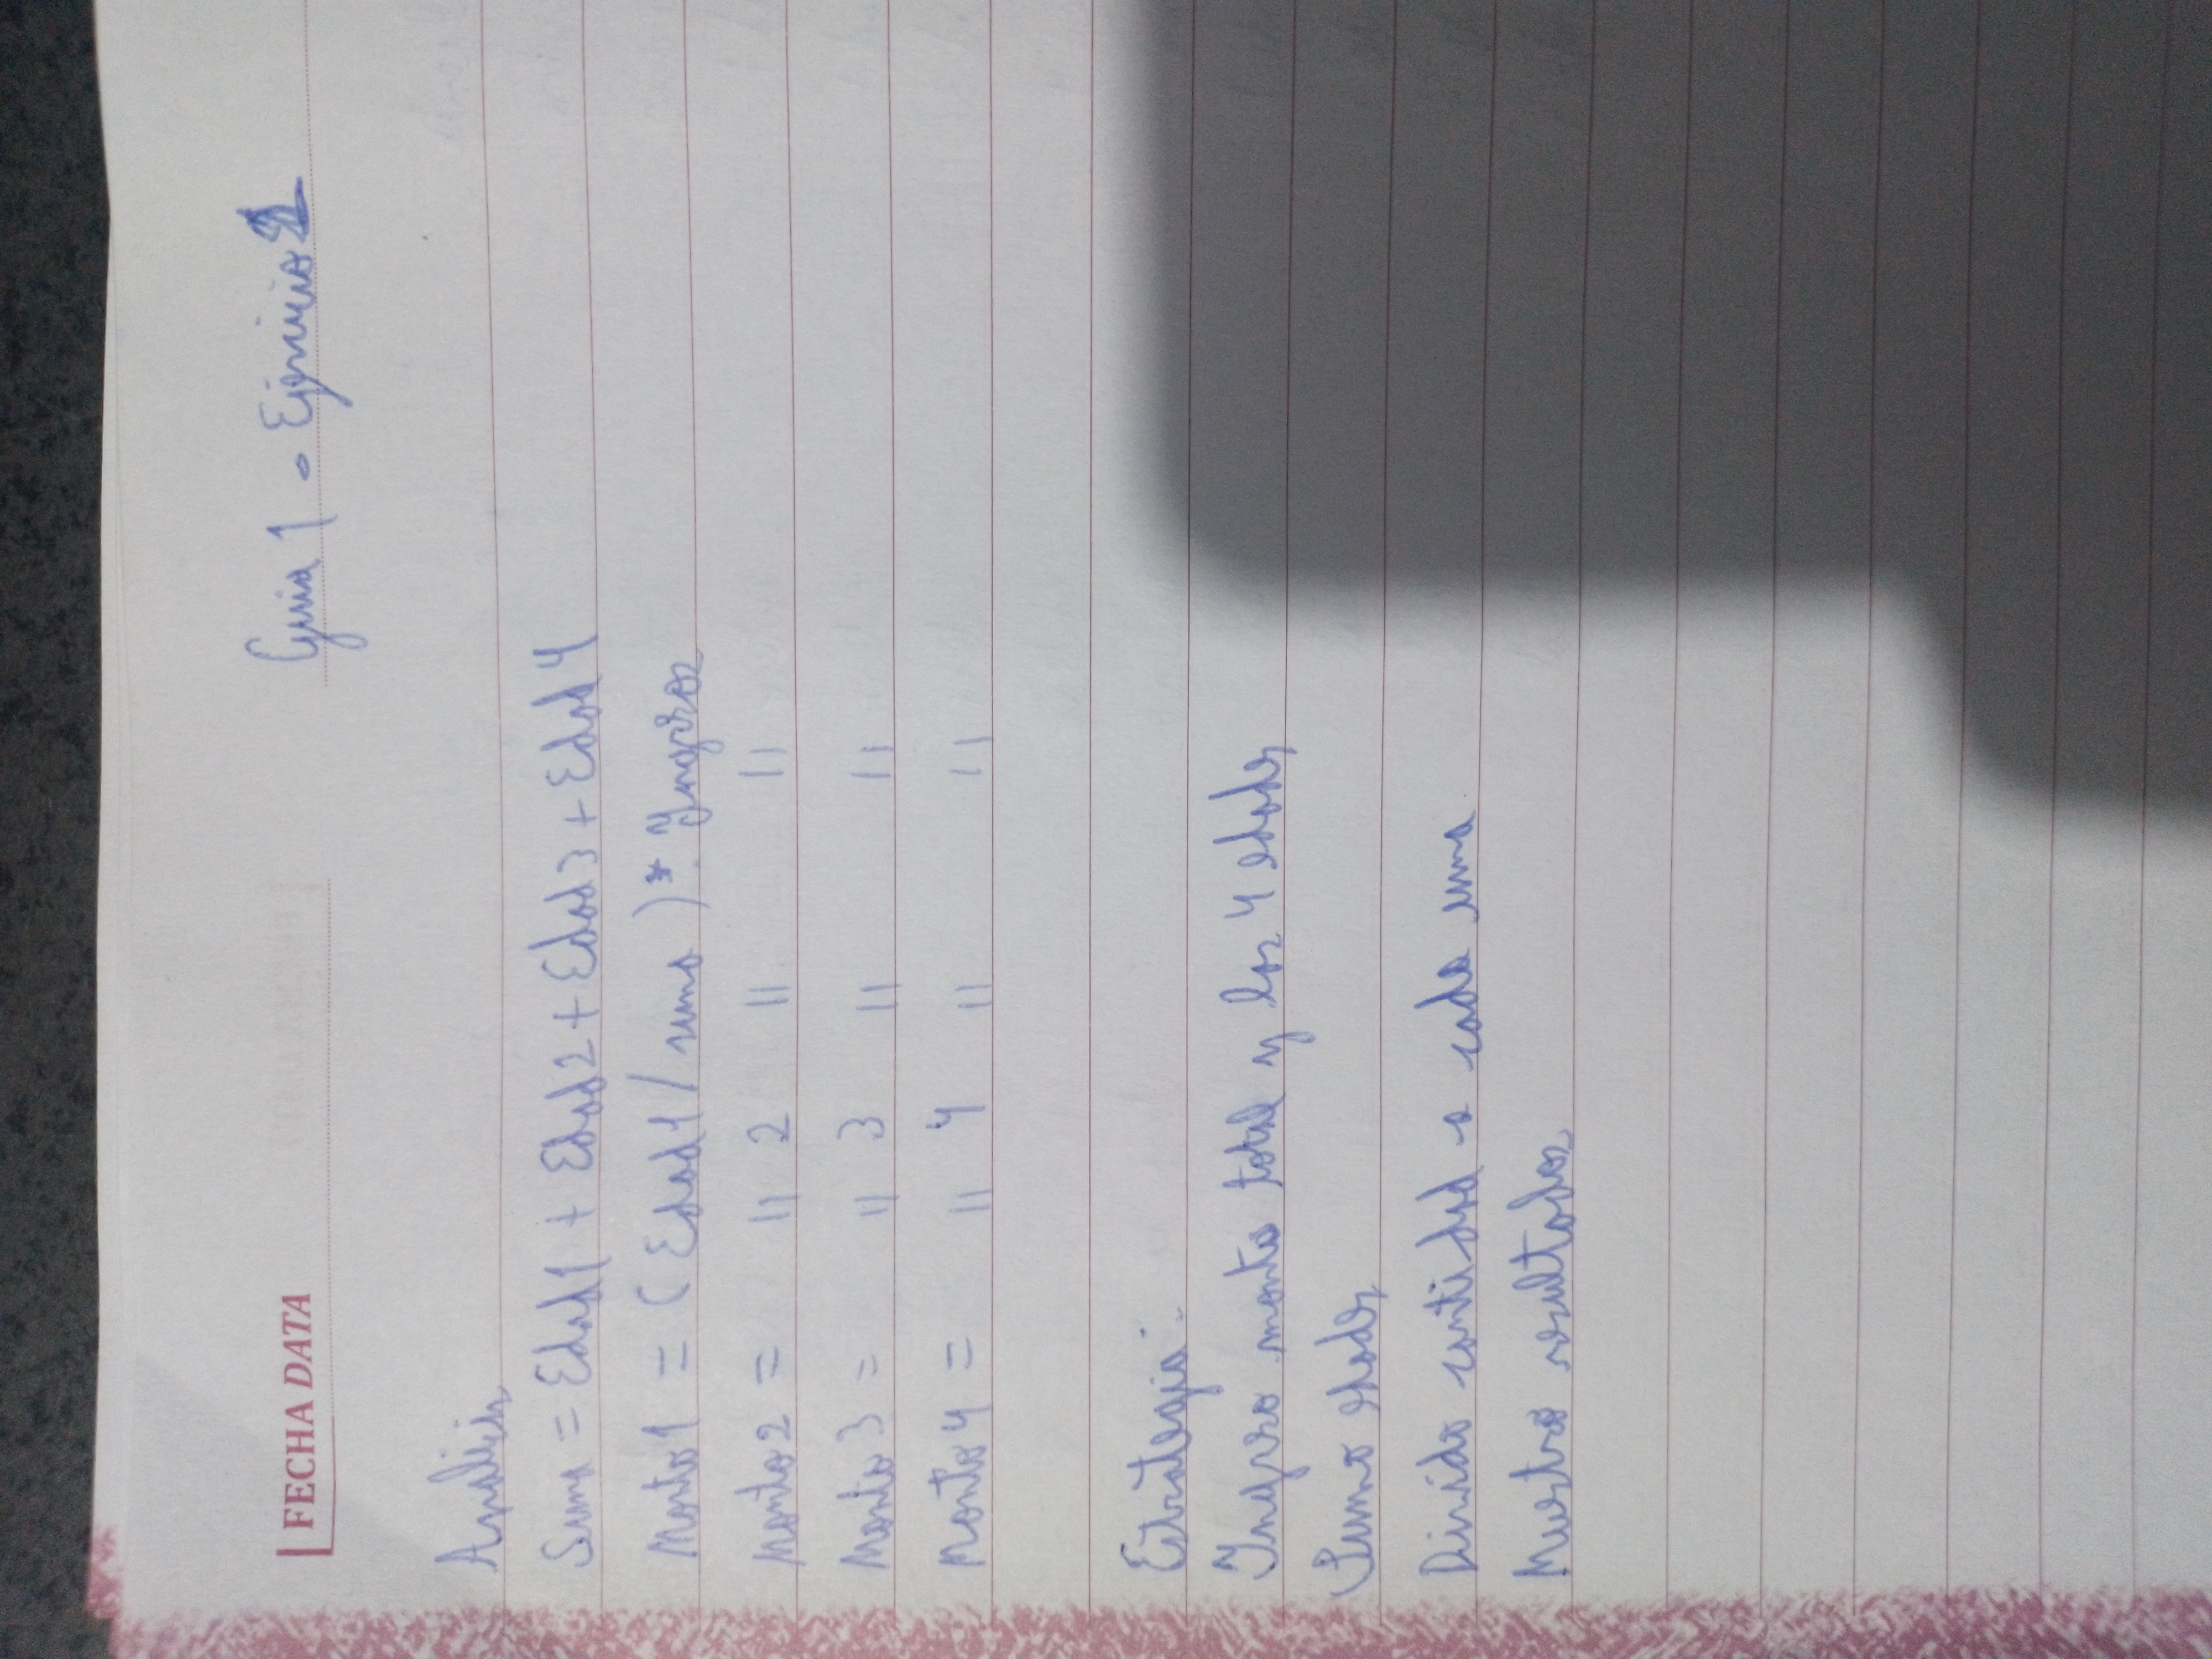 FECHA DATA
Guia 1 - Ejercicio
Analisis
Suma = Edad1 + Edad2 + Edad3 + Edad4
Monto1 = (Edad1 / suma) * Ingresos
Monto2 = " 2 " "
Monto3 = " 3 " "
Monto4 = " 4 " "
Estrategia:
Ingreso monto total y las 4 edades
Sumo edades
Divido cantidad a cada una
Muestro resultados